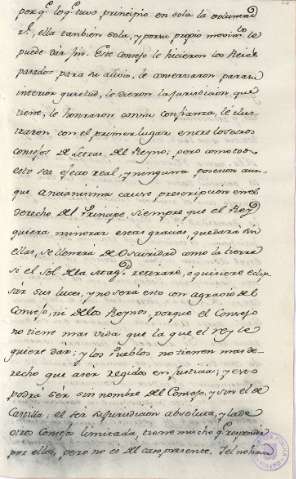 porq.e lo q.e tuvo principio en sola la voluntad
R.l, ella tambien sola, y por su propio movim.to le
puede dar fin. Este Consejo le hicieron los Reies
pasados para su alivio, le conservaron para su
interior quietud, le dieron la Jurisdiccion que
tiene, le honraron con su confianza, le ilus-
traron, con el primer lugar entre los otros
Consejos de letras del Reyno; pero como todo
esto sea efecto real, y ninguna posesion aun-
que antiquisima cause prescripcion en el
derecho del Principe, siempre que el Rey
quiera minorar estas gracias, quedará sin
ellas, se llenará de obscuridad como la tierra
si el Sol de la Mag.d retirare, ó quisiere eclip-
sar sus luces, y no será esto con agravio del
Consejo, ni de los Reynos, porque el Consejo
no tiene mas vida que la que el rey le
quiere dar; y los Pueblos no tienen mas de-
recho que á ser regidos en Justicia; y esto
podrá ser sin nombre del Consejo, y sin el de
Castilla; el ser Jurisdicion absoluta, y la de
otro Consejo limitada, tiene mucho q.e responder
por ellos, pero no es del caso presente.